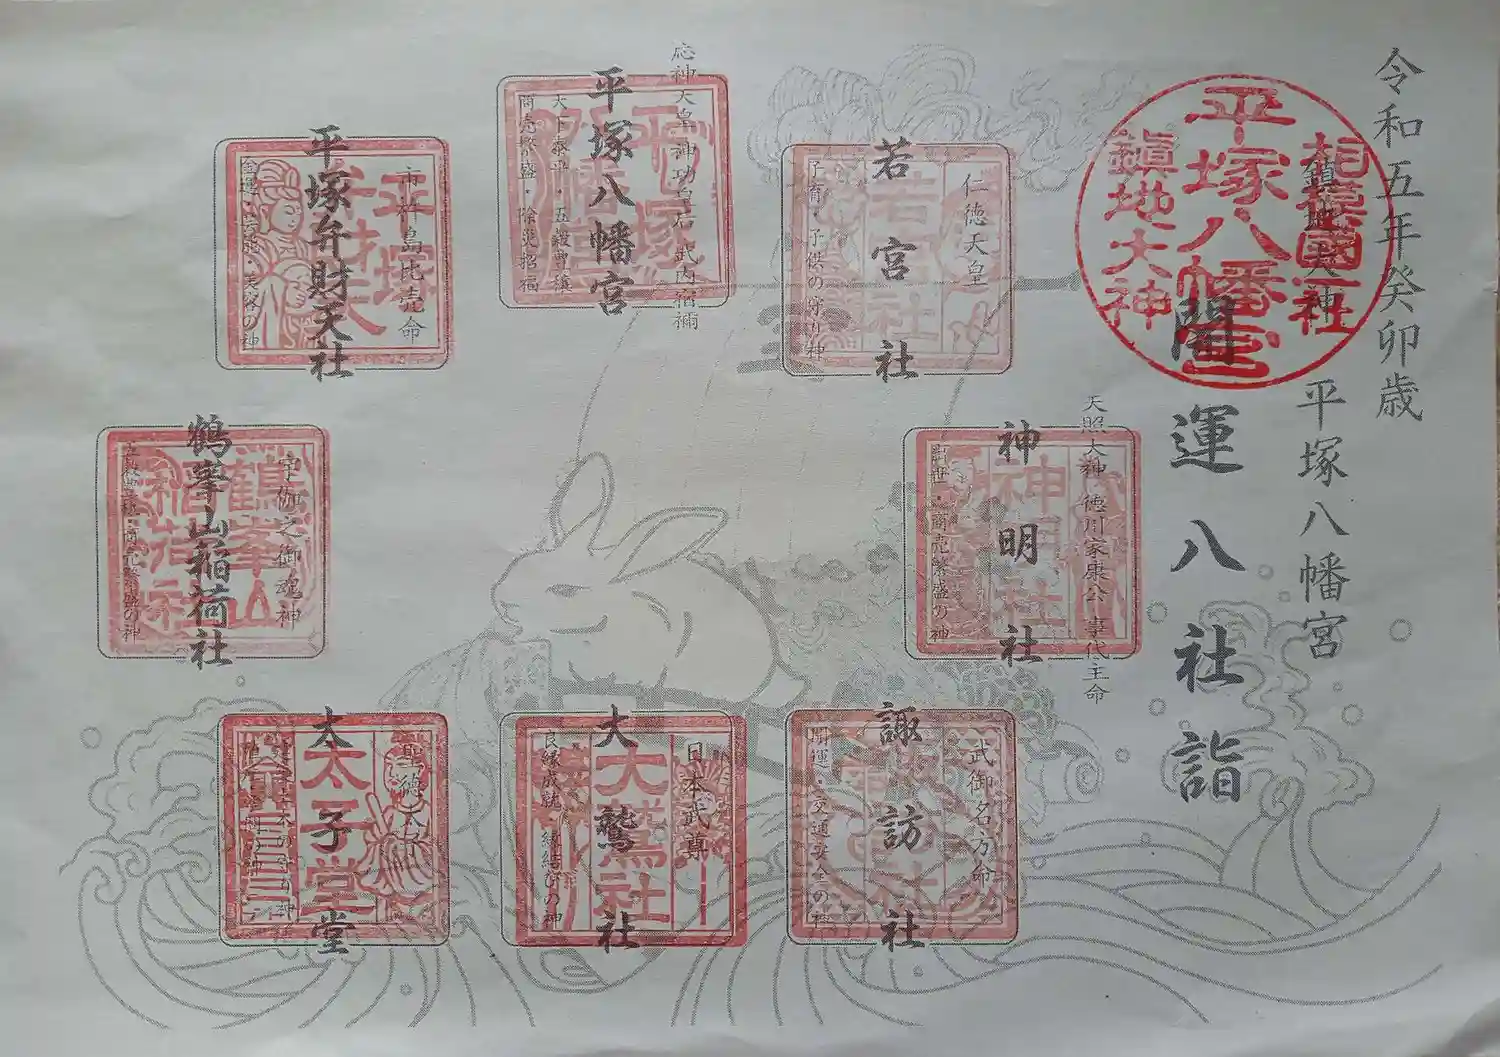 令和五年癸卯歳
鎮地大神
平塚八幡宮
開運八社詣
相模國一社
平塚八幡宮
鎮地大神
仁徳天皇
若宮社
子育・子供の守り神
応神天皇 神功皇后 武内宿禰
平塚八幡宮
天下泰平・五穀豊穣
商売繁盛・除災招福
市杵島比売命
平塚弁財天社
金運・芸能・美容の神
天照大神 徳川家康公 事代主命
神明社
出世・商売繁盛の神
宇迦之御魂神
鶴峯山稲荷社
五穀豊穣・商売繁盛の神
武御名方命
諏訪社
開運・交通安全の神
日本武尊
大鷲社
良縁成就・縁結びの神
聖徳太子
太子堂